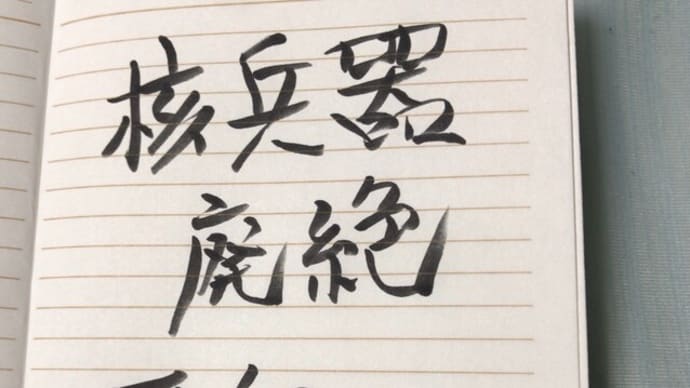 核兵器
廃絶